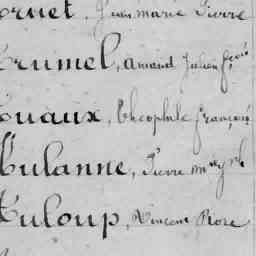 ruet, Jean marie Pierre
rumel, amand Julien frçois
uaux, Théophile françois
ulanne, Pierre m
uloup, Vincent Rose